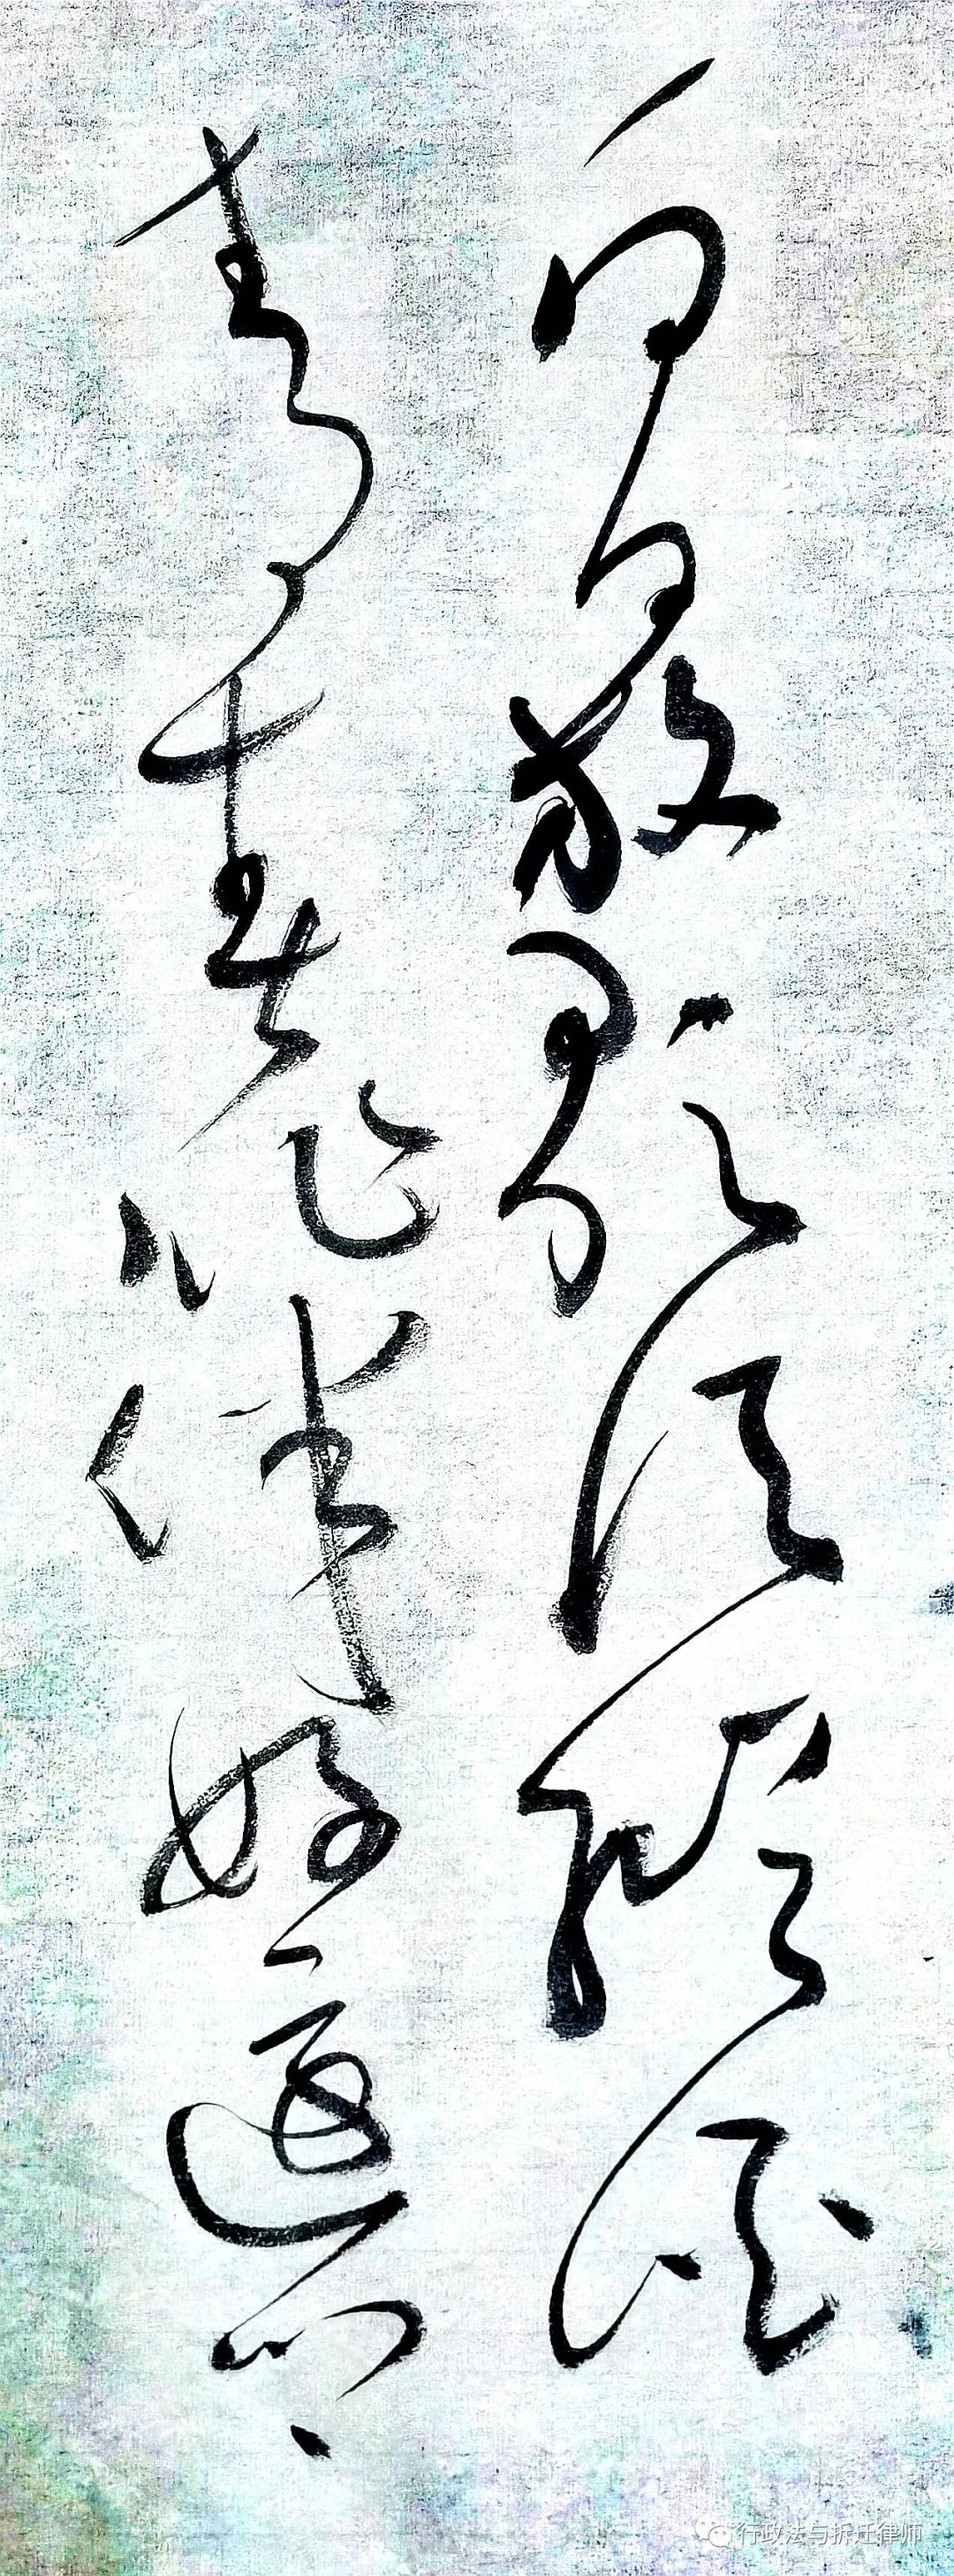 白日放歌须纵酒
青春作伴好还乡
行政法与拆迁律师